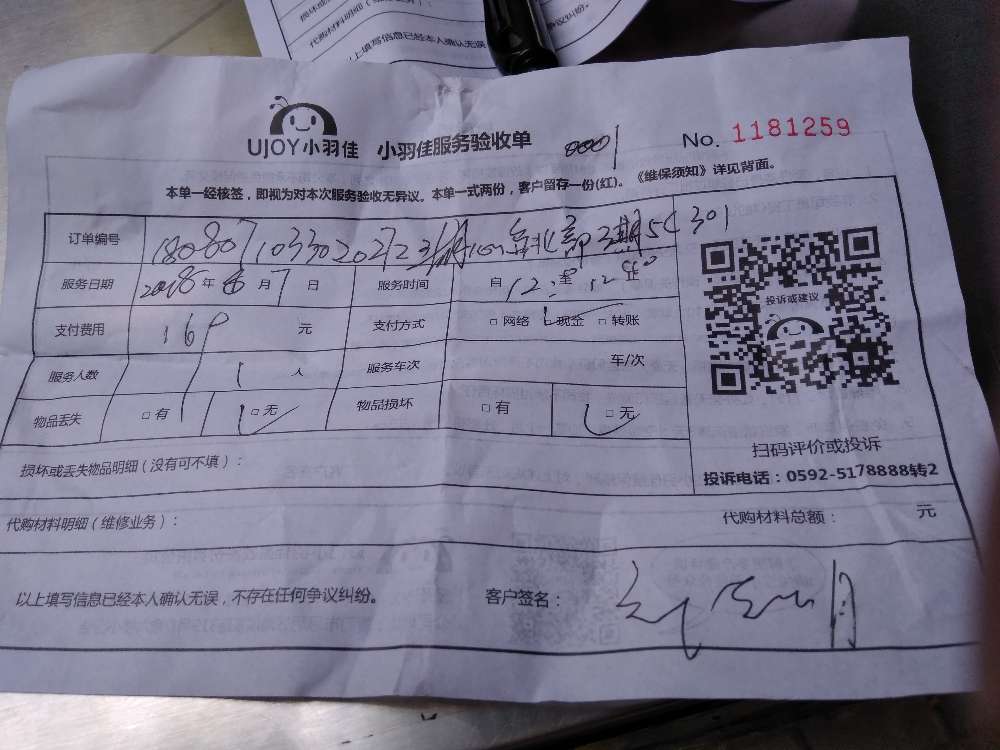 代购材料明细(维
以上填写信息已经本人确认无误
UJOY小羽佳 小羽佳服务验收单 0001 No. 1181259
本单一经核签，即视为对本次服务验收无异议。本单一式两份，客户留存一份(红)。《维保须知》详见背面。
订单编号 180807103302027 5C 301
服务日期 2018年8月7日 服务时间 自12: 至12
支付费用 169 元 支付方式 □网络 □现金 □转账
服务人数 1 人 服务车次 车/次
物品丢失 □有 □无 物品损坏 □有 □无
投诉或建议
扫码评价或投诉
投诉电话：0592-5178888转2
损坏或丢失物品明细（没有可不填）：
代购材料明细（维修业务）： 代购材料总额： 元
以上填写信息已经本人确认无误，不存在任何争议纠纷。 客户签名：